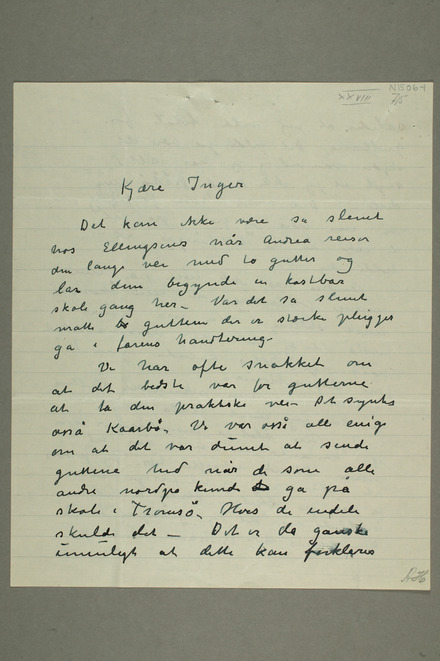 XXVIII
Kjære Inger
Det kan ikke være så slemt
hos Ellingsens når Andrea reiser
den lange vei med to gutter og
lar dem begynde en kostbar
skole gang her. Var det så slemt
måtte guttene der er sterke plugger
gå i farens handtering.
Vi har ofte snakket om
at det bedste var for guttene
at ta den praktiske vei. Det syntes
også Kaarbø. Vi var også alle enige
om at det var dumt at sende
guttene ned når de som alle
andre nordpå kunde gå på
skole i Tromsø. Hvis de endelig
skulde det — Det er da ganske
umuligt at dette kan forklares